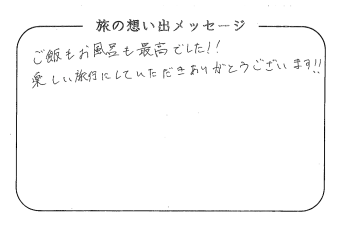 旅の想い出メッセージ
ご飯もお風呂も最高でした!!
楽しい旅行にしていただきありがとうございます!!